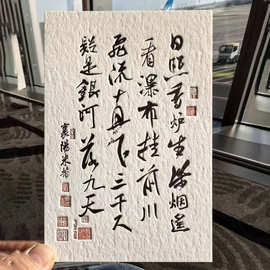 日照香炉生紫烟遥
看瀑布挂前川
飛流直下三千尺
疑是銀河落九天
襄陽米芾